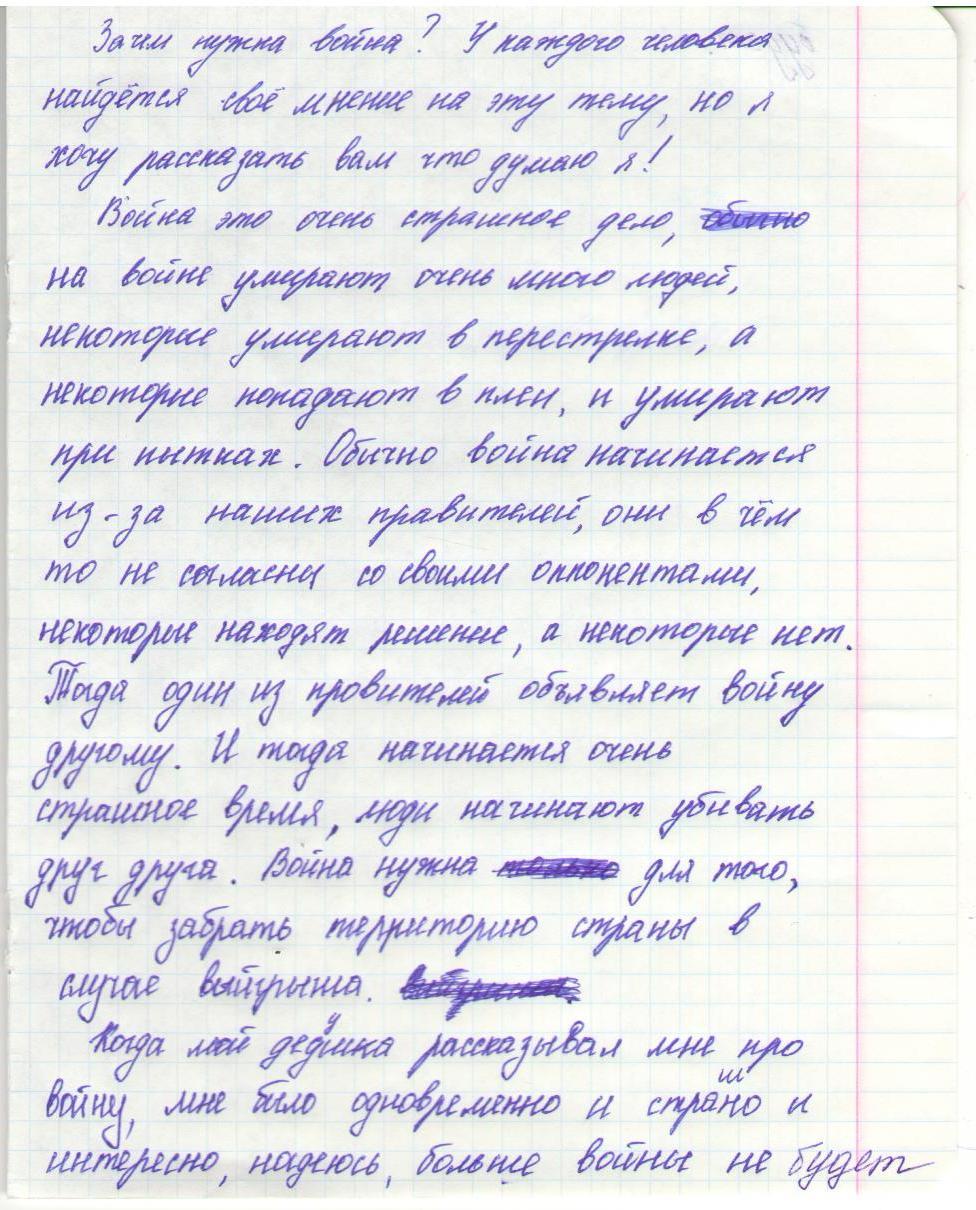 Зачем нужна война? У каждого человека
найдётся своё мнение на эту тему, но я
хочу рассказать вам что думаю я!
Война это очень страшное дело, обычно
на войне умирают очень много людей,
некоторые умирают в перестрелке, а
некоторые попадают в плен, и умирают
при пытках. Обычно война начинается
из-за наших правителей, они в чём
то не согласны со своими оппонентами,
некоторые находят решение, а некоторые нет.
Тогда один из провителей объявляет войну
другому. И тогда начинается очень
страшное время, люди начинают убивать
друг друга. Война нужна только для того,
чтобы забрать территорию страны в
случае выйгрыша.
Когда мой дедушка рассказывал мне про
войну, мне было одновременно и страшно и
интересно, надеюсь, больше войны не будет